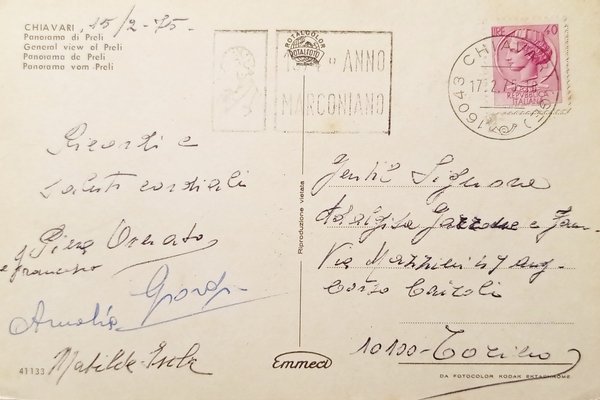 CHIAVARI, 15/2-75-
Panorama di Preli
General view of Preli
Panorama de Preli
Panorama vom Preli
ROTALCOLOR
ROTALFOTO
MILANO
ANNO
MARCONIANO
LIRE 40
REPVBBLICA
ITALIANA
16043 CHIAVARI (GE)
17.2.75
Ricordi e
saluti cordiali
Piera Onorato
e Francesco
Amalia Giorgi
Matilde Isola
Riproduzione vietata
Gentil Signora
Adalgisa Gazzone e Fam
Via Mazzini 47 ang.
Corso Cairoli
10100-Torino
41133
Emmeci
DA FOTOCOLOR KODAK EKTACHROME